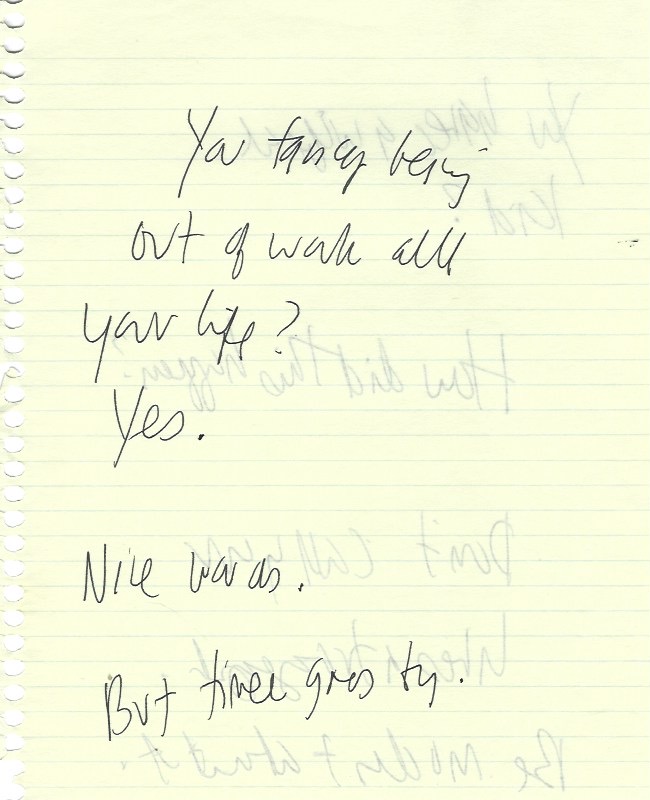 You fancy being
out of work all
your life?
Yes.
Nice words.
But time goes by.